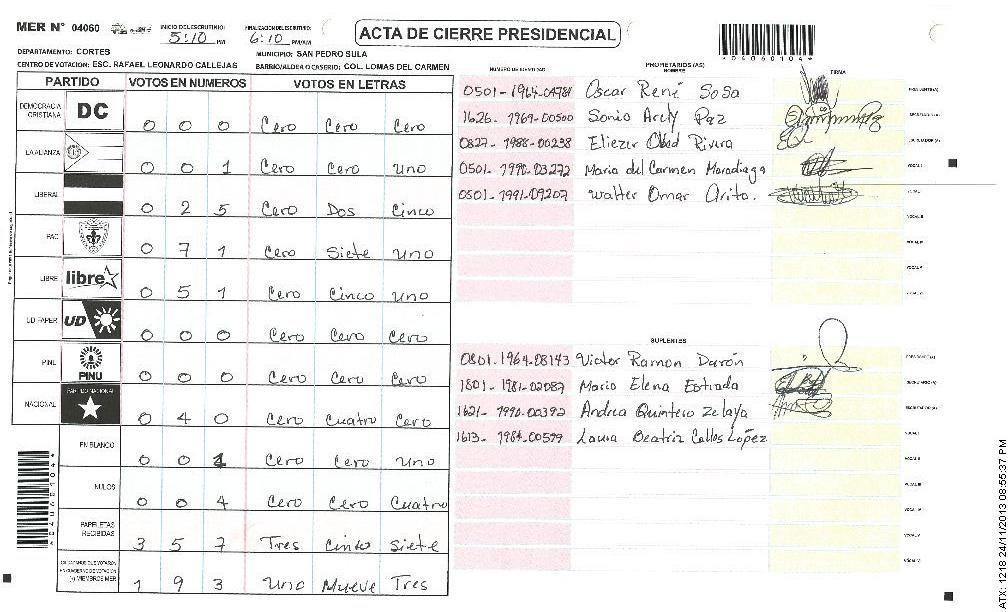 MER N° 04060
INICIO DEL ESCRUTINIO: 5:10 PM
FINALIZACION DEL ESCRUTINIO: 6:10 PM/AM
ACTA DE CIERRE PRESIDENCIAL
*04060104*
DEPARTAMENTO: CORTES
MUNICIPIO: SAN PEDRO SULA
CENTRO DE VOTACION: ESC. RAFAEL LEONARDO CALLEJAS
BARRIO/ALDEA O CASERIO: COL. LOMAS DEL CARMEN
PARTIDO VOTOS EN NUMEROS VOTOS EN LETRAS
DEMOCRACIA CRISTIANA DC 0 0 0 Cero Cero Cero
LA ALIANZA 0 0 1 Cero Cero Uno
LIBERAL 0 2 5 Cero Dos Cinco
PAC 0 7 1 Cero Siete Uno
LIBRE libre 0 5 1 Cero Cinco Uno
UD FAPER UD 0 0 0 Cero Cero Cero
PINU PINU 0 0 0 Cero Cero Cero
NACIONAL PARTIDO NACIONAL 0 4 0 Cero Cuatro Cero
EN BLANCO 0 0 1 Cero Cero Uno
NULOS 0 0 4 Cero Cero Cuatro
PAPELETAS RECIBIDAS 3 5 7 Tres Cinco Siete
CIUDADANOS QUE VOTARON EN CUADERNO DE VOTACION (+) MIEMBROS MER 1 9 3 Uno Nueve Tres
NUMERO DE IDENTIDAD PROPIETARIOS (AS) NOMBRE FIRMA
0501-1964-04784 Oscar René Sosa PRESIDENTE(A)
1626-1969-00500 Sonia Arely Paz SECRETARIO(A)
0827-1988-00238 Eliezer Obed Rivera ESCRUTADOR(A)
0501-1990-03272 Maria del Carmen Maradiaga VOCAL I
0501-1991-09207 Walter Omar Arita. VOCAL II
VOCAL III
VOCAL IV
VOCAL V
VOCAL VI
SUPLENTES
0801-1964-08143 Victor Ramon Durón PRESIDENTE(A)
1801-1981-02087 Maria Elena Estrada SECRETARIO(A)
1621-1990-00392 Andrea Quintero Zelaya ESCRUTADOR(A)
1613-1984-00599 Laura Beatriz Calles López VOCAL I
VOCAL II
VOCAL III
VOCAL IV
VOCAL V
VOCAL VI
*04060104*
ATX: 1218 24/11/2013 08:55:37 PM